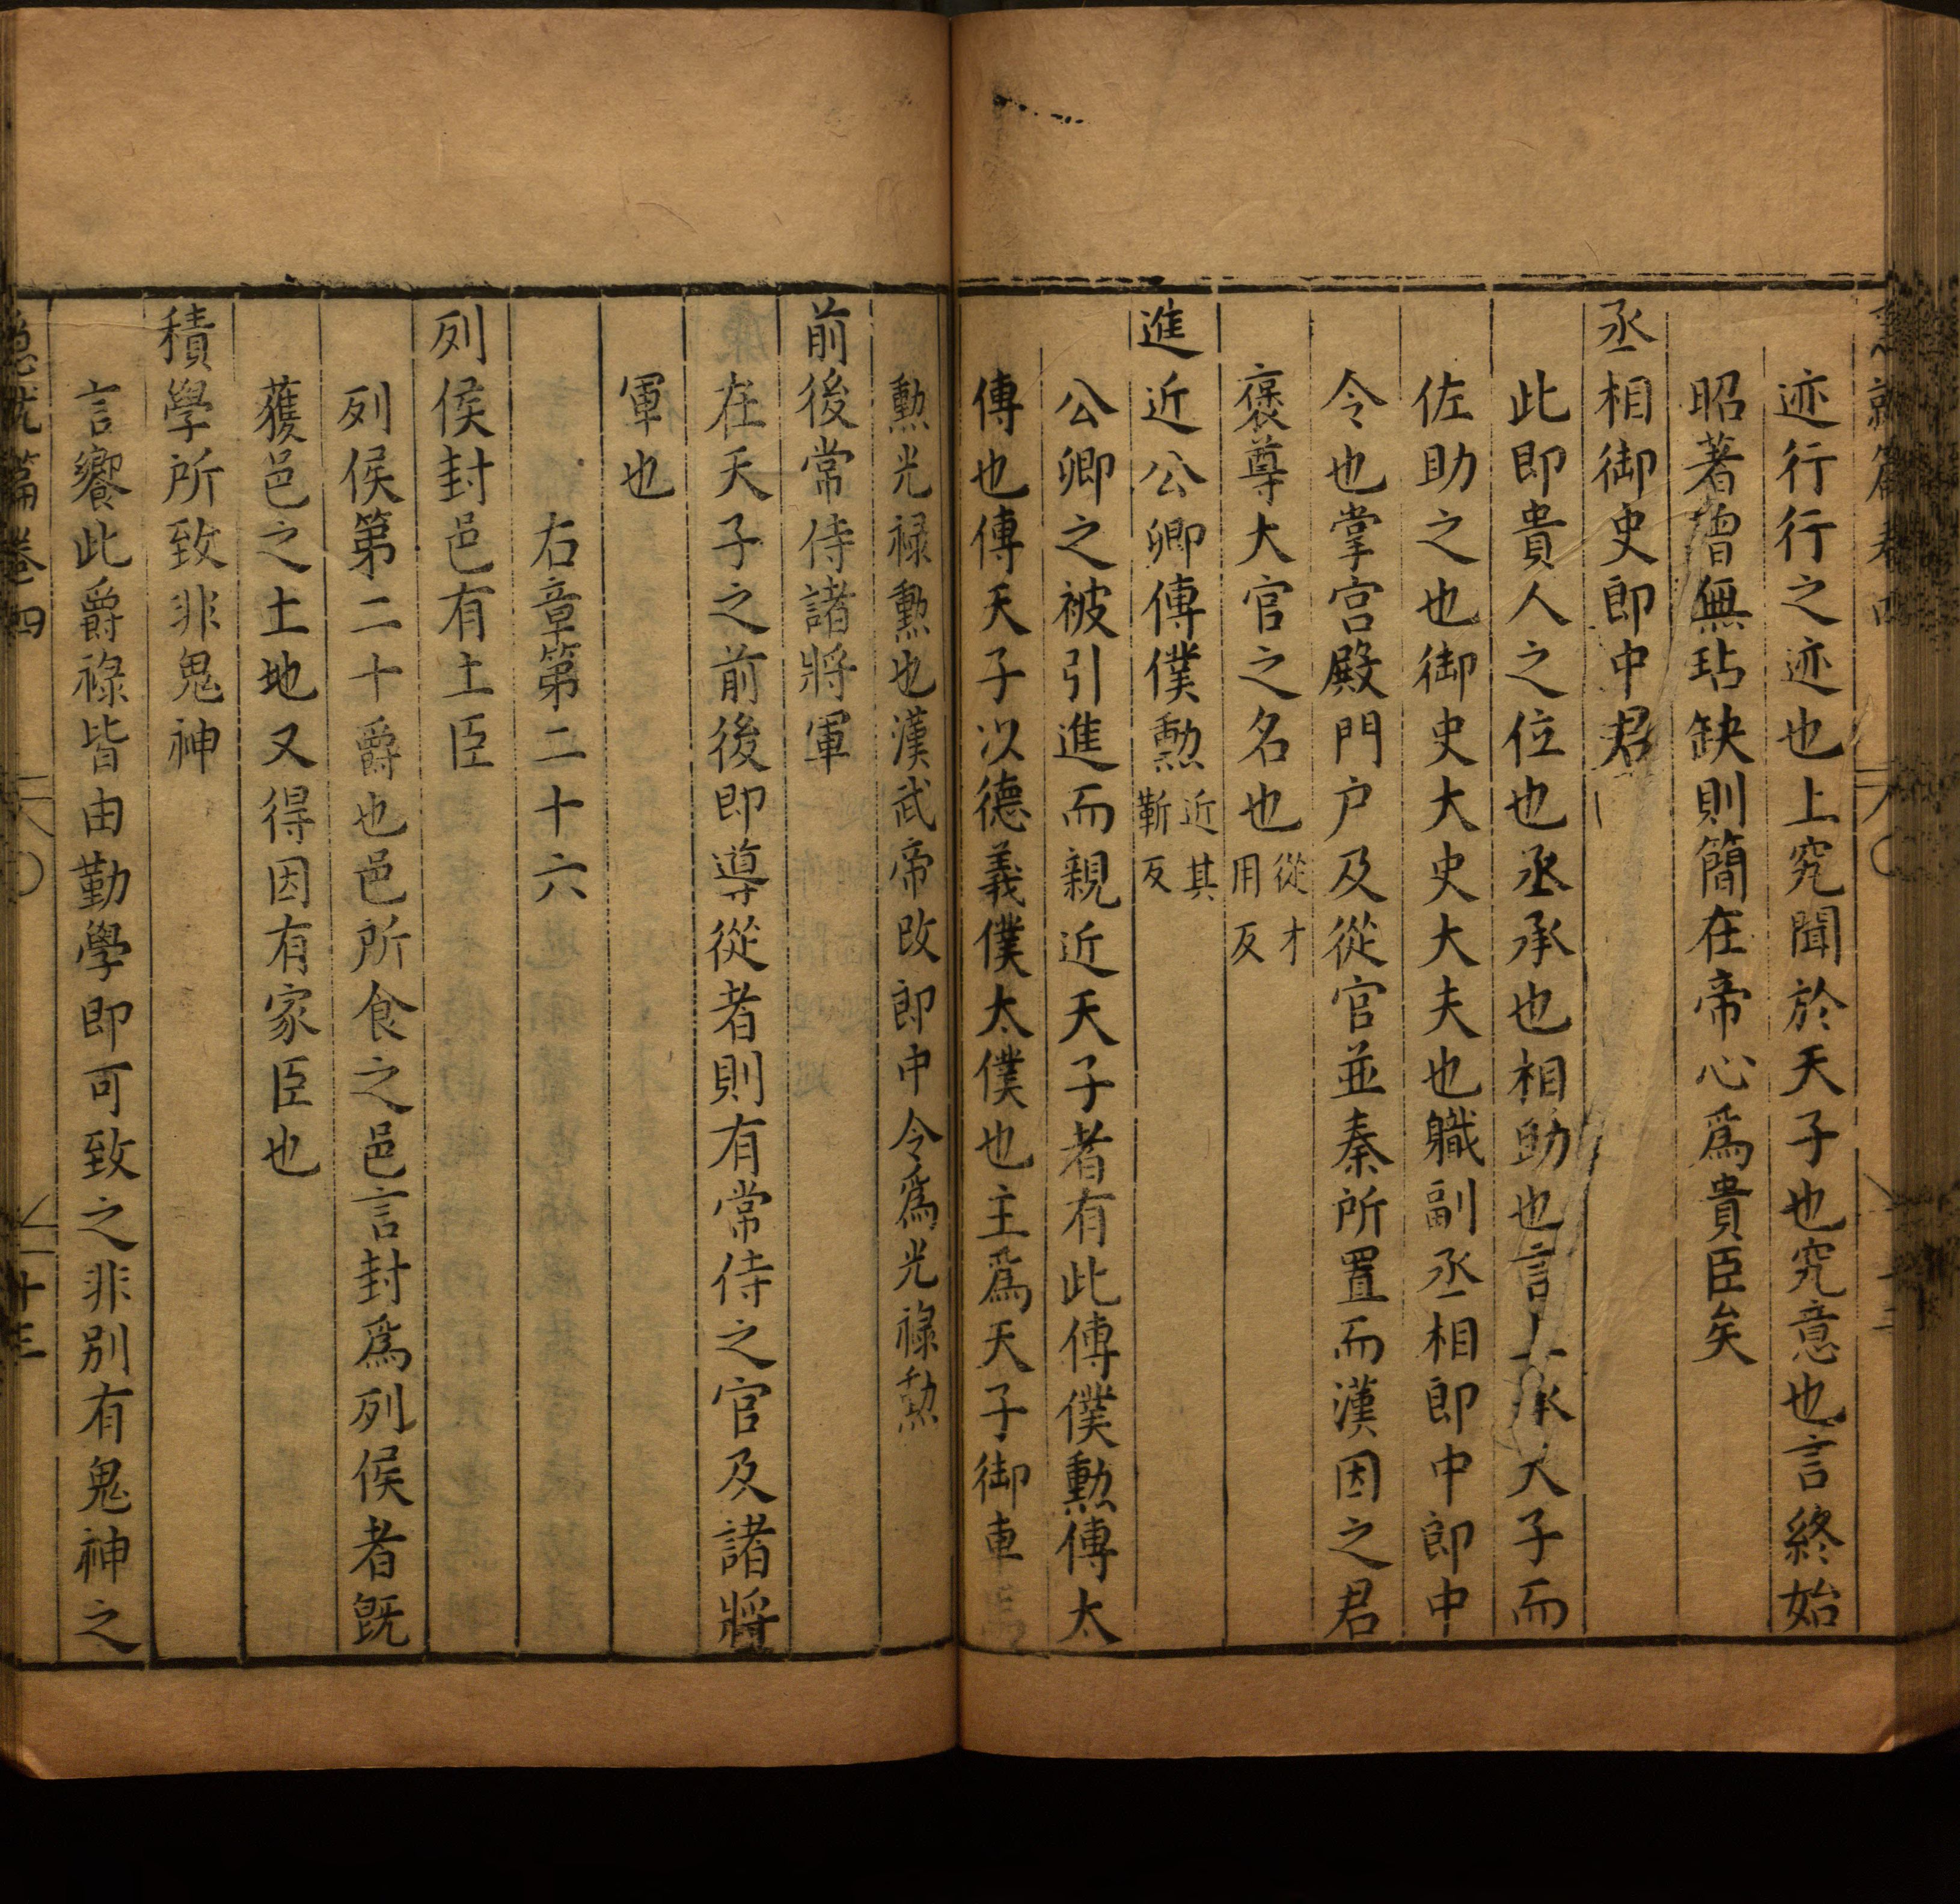 迹行行之迹也上究聞於天子也究意也言終始
昭著曾無玷缺則簡在帝心爲貴臣矣
丞相御史郎中君
此即貴人之位也丞承也相助也言上承天子而
佐助之也御史大史大夫也職副丞相郎中郎中
令也掌宮殿門戶及從官並秦所置而漢因之君
褒尊大官之名也從才用反
進近公卿傅僕勲近其靳反
公卿之被引進而親近天子者有此傅僕勲傅太
傅也傅天子以德義僕太僕也主爲天子御車
勲光祿勲也漢武帝改郎中令爲光祿勲
前後常侍諸將軍
在天子之前後即導從者則有常侍之官及諸將
軍也
右章第二十六
列侯封邑有土臣
列侯第二十爵也邑所食之邑言封爲列侯者既
獲邑之土地又得因有家臣也
積學所致非鬼神
言饗此爵祿皆由勤學即可致之非別有鬼神之
急就篇卷四
十三